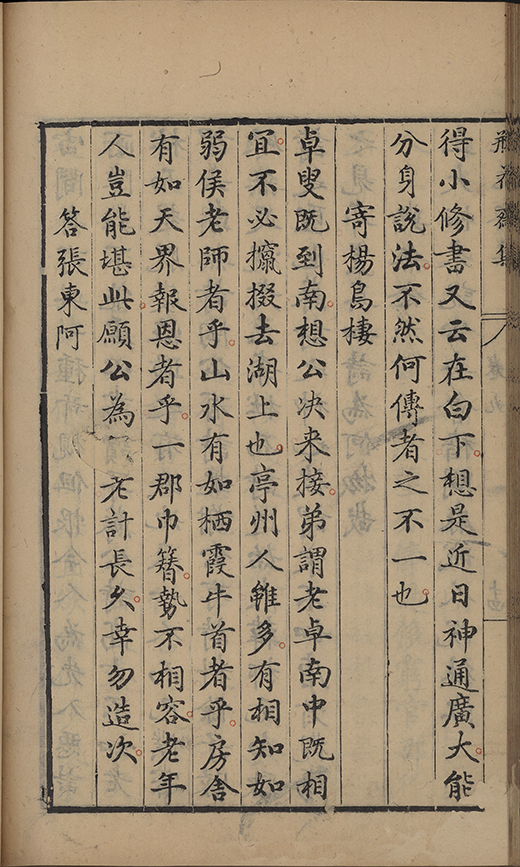 得小修書又云在白下想是近日神通廣大能
分身說法不然何傳者之不一也
寄楊鳥棲
卓叟既到南想公决来接弟謂老卓南中既相
冝不必攛掇去湖上也亭州人雖多有相知如
弱侯老師者乎山水有如栖霞牛首者乎房舍
有如天界報恩者乎一郡巾簪勢不相容老年
人豈能堪此願公為老計長久幸勿造次
答張東阿